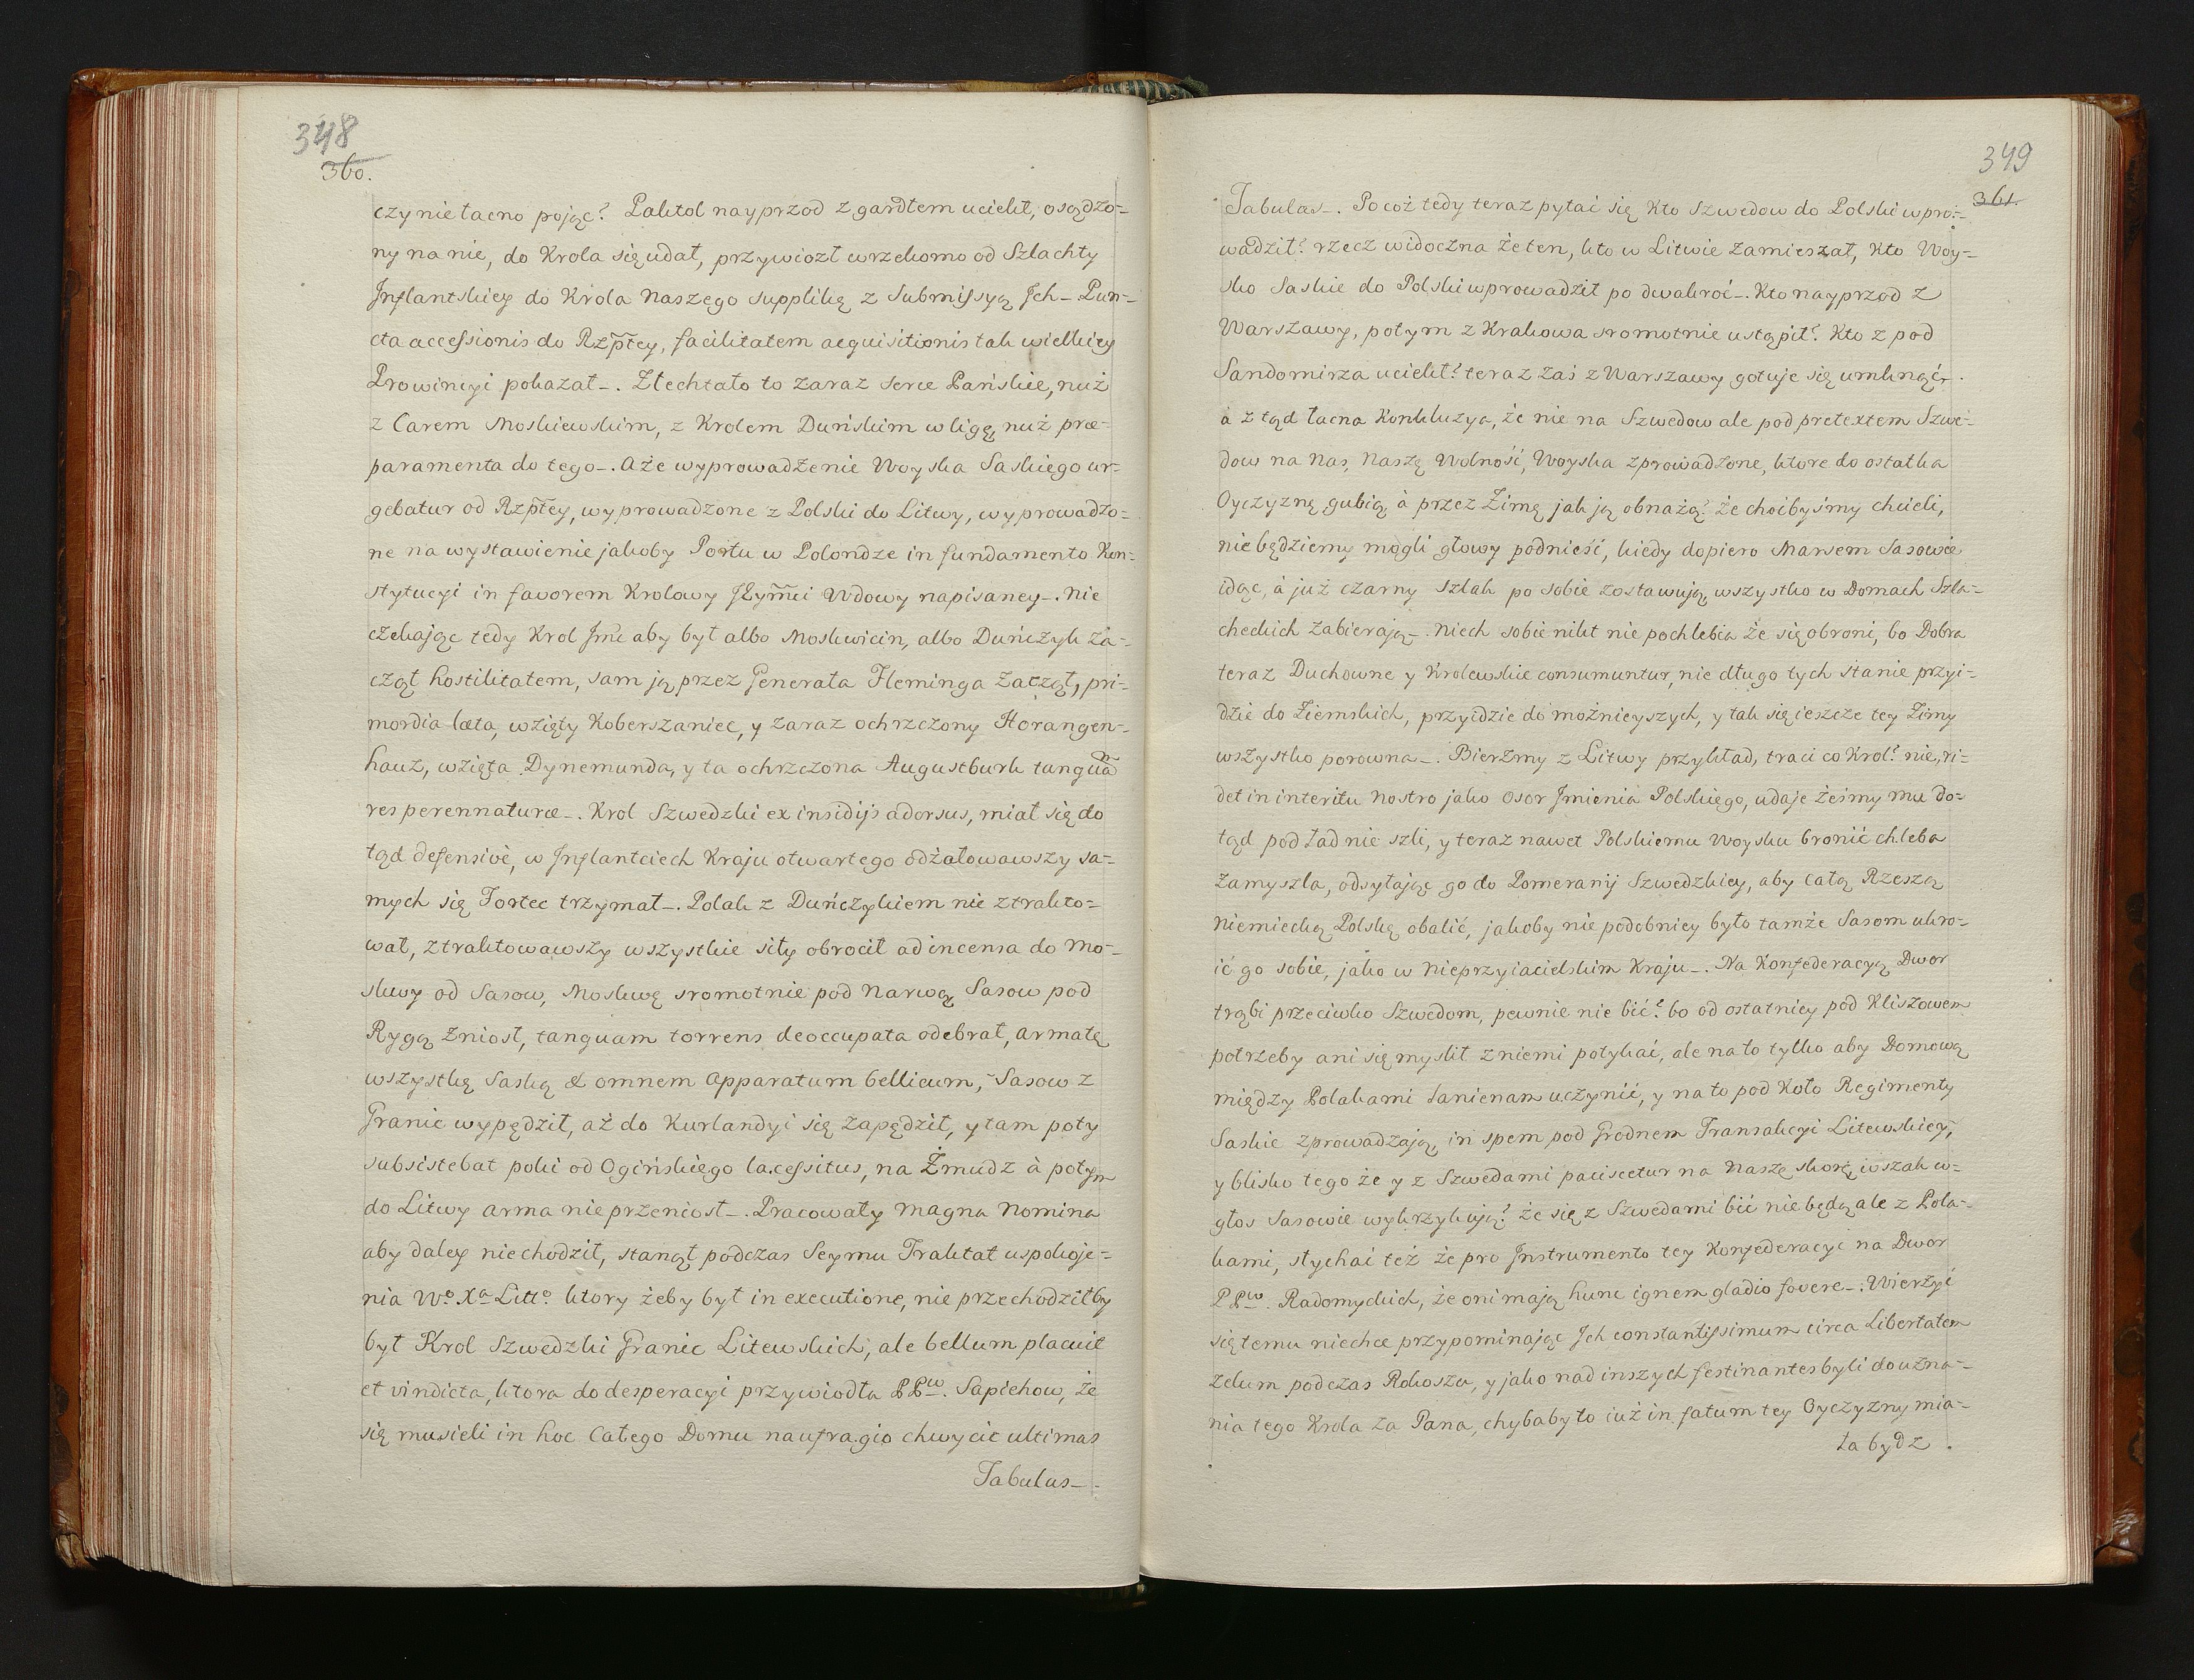 348
360.
czy nie łacno pojąc? Patkol nayprzod z gardłem uciekł, osądzo=
ny na nie, do Krola się udał, przywiozł wrzekomo od Szlachty
Inflantskiey do Krola Naszego supplikę z Submissyą Ich_ Pun=
cta accessionis do Rzptey, facilitatem acquisitionis tak wielkiey
Prowincyi pokazał_. Złechtało to zaraz serce Pańskie, nuż
z Carem Moskiewskim, z Krolem Duńskim w ligę, nuż præ=
paramenta do tego_. A że wyprowadzenie Woyska Saskiego ur=
gebatur od Rzptey, wyprowadzone z Polski do Litwy, wyprowadzo=
ne na wystawienie jakoby Portu w Polondze in fundamento Kon=
stytucyi in favorem Krolowy JEymci Wdowy napisaney_. Nie
czekając tedy Krol Jmc aby był albo Moskwicin, albo Duńczyk za=
cząt hostilitatem, sam ją przez Generała Fleminga zacząt, pri=
mordia læta, wzięty Koberszaniec, y zaraz ochrzczony Horangen=
hauz, wzięta Dynemunda, y ta ochrzczona Augustburk tanqua
res perennaturæ_. Krol Szwedzki ex insidijs adorsus, miał się do
tąd defensivè, w Inflantciech Kraju otwartego odżałowawszy sa=
mych się Fortec trzymał_. Polak z Duńczykiem nie ztrakto=
wał, ztraktowawszy wszystkie siły obrocił ad incensa do Mo=
skwy od Sasow, Moskwę sromotnie pod Narwą, Sasow pod
Rygą zniosł, tanquam torrens deoccupata odebrał, armatę
wszystkę Saską & omnem apparatum bellicum, Sasow z
Granic wypędził, aż do Kurlandyi się zapędził, y tam poty
subsistebat poki od Ogińskiego lacessitus, na Żmudz à potym
do Litwy arma nie przeniosł_. Pracowały magna Nomina
aby daley nie chodził, stanął podczas Seymu Traktat uspokoje=
nia Wo. Xa Litto. ktory żeby był in executione, nie przechodziłby
był Krol Szwedzki Granic Litewskich, ale bellum placuit
et vindicta, ktora do desperacyi przywiodła PPw. Sapiehow, że
się musieli in hoc całego Domu naufragio chwycić ultimas
Tabulas_.
349
361.
Tabulas_. Pocoż tedy teraz pytać się kto Szwedow do Polski wpro=
wadził? rzecz widoczna że ten, kto w Litwie zamieszał, kto Woy=
sko Saskie do Polski wprowadził po dwakroć_. Kto nayprzod z
Warszawy, potym z Krakowa sromotnie ustąpił? Kto z pod
Sandomirza uciekł? teraz zaś z Warszawy gotuje się umknąć_.
à z tąd łacna Konkluzya, że nie na Szwedow ale pod pretextem Szwe=
dow na nas, naszę Wolność, Woyska zprowadzone, ktore do ostatka
Oyczyznę gubią à przez Zimę jak ją obnażą? że choćbyśmy chcieli,
nie będziemy mogli głowy podnieść, kiedy dopiero Marsem Sasowie
idąc, à już czarny szlak po sobie zostawują, wszystko w Domach Szla=
checkich zabierają_. Niech sobie nikt nie pochlebia że się obroni, bo Dobra
teraz Duchowne y Krolewskie consumuntur, nie długo tych stanie przyi=
dzie do Ziemskich, przyidzie do możnieyszych, y tak się ieszcze tey Zimy
wszystko porowna_. Bierzmy z Litwy przykład, traci co Krol? nie, ri=
det in interitu nostro jako osor Imienia Polskiego, udaje żeśmy mu do=
tąd pod ład nie szli, y teraz nawet Polskiemu Woysku bronić chleba
zamyszla, odsyłając go do Pomeranij Szwedzkiey, aby całą Rzeszą
niemiecką Polskę obalić, jakoby nie podobniey było tamże Sasom ukro=
ić go sobie, jako w nieprzyiacielskim Kraju_. Na Konfederacyą Dwor
trąbi przeciwko Szwedom, pewnie nie bić? bo od ostatniey pod Kliszowem
potrzeby ani się myslił z niemi potykać, ale na to tylko aby Domową
między Polakami lanienam uczynić, y na to pod Koło Regimenty
Saskie zprowadzają, in spem pod Grodnem Transakcyi Litewskiey,
y blisko tego że y z Szwedami paciscetur na naszę skorę, wszak w=
głos Sasowie wykrzykują? że się z Szwedami bić nie będą ale z Pola=
kami, słychać też że pro Instrumento tey Konfederacyi na Dwor
PPw. Radomyckich, że oni mają hunc ignem gladio fovere_. Wierzyć
się temu niechce przypominając Ich constantissimum circa Libertatem
zelum podczas Rokosza, y jako nad inszych festinantes byli do uzna=
nia tego Krola za Pana, chybaby to już in fatum tey Oyczyzny mia=
ła bydz.